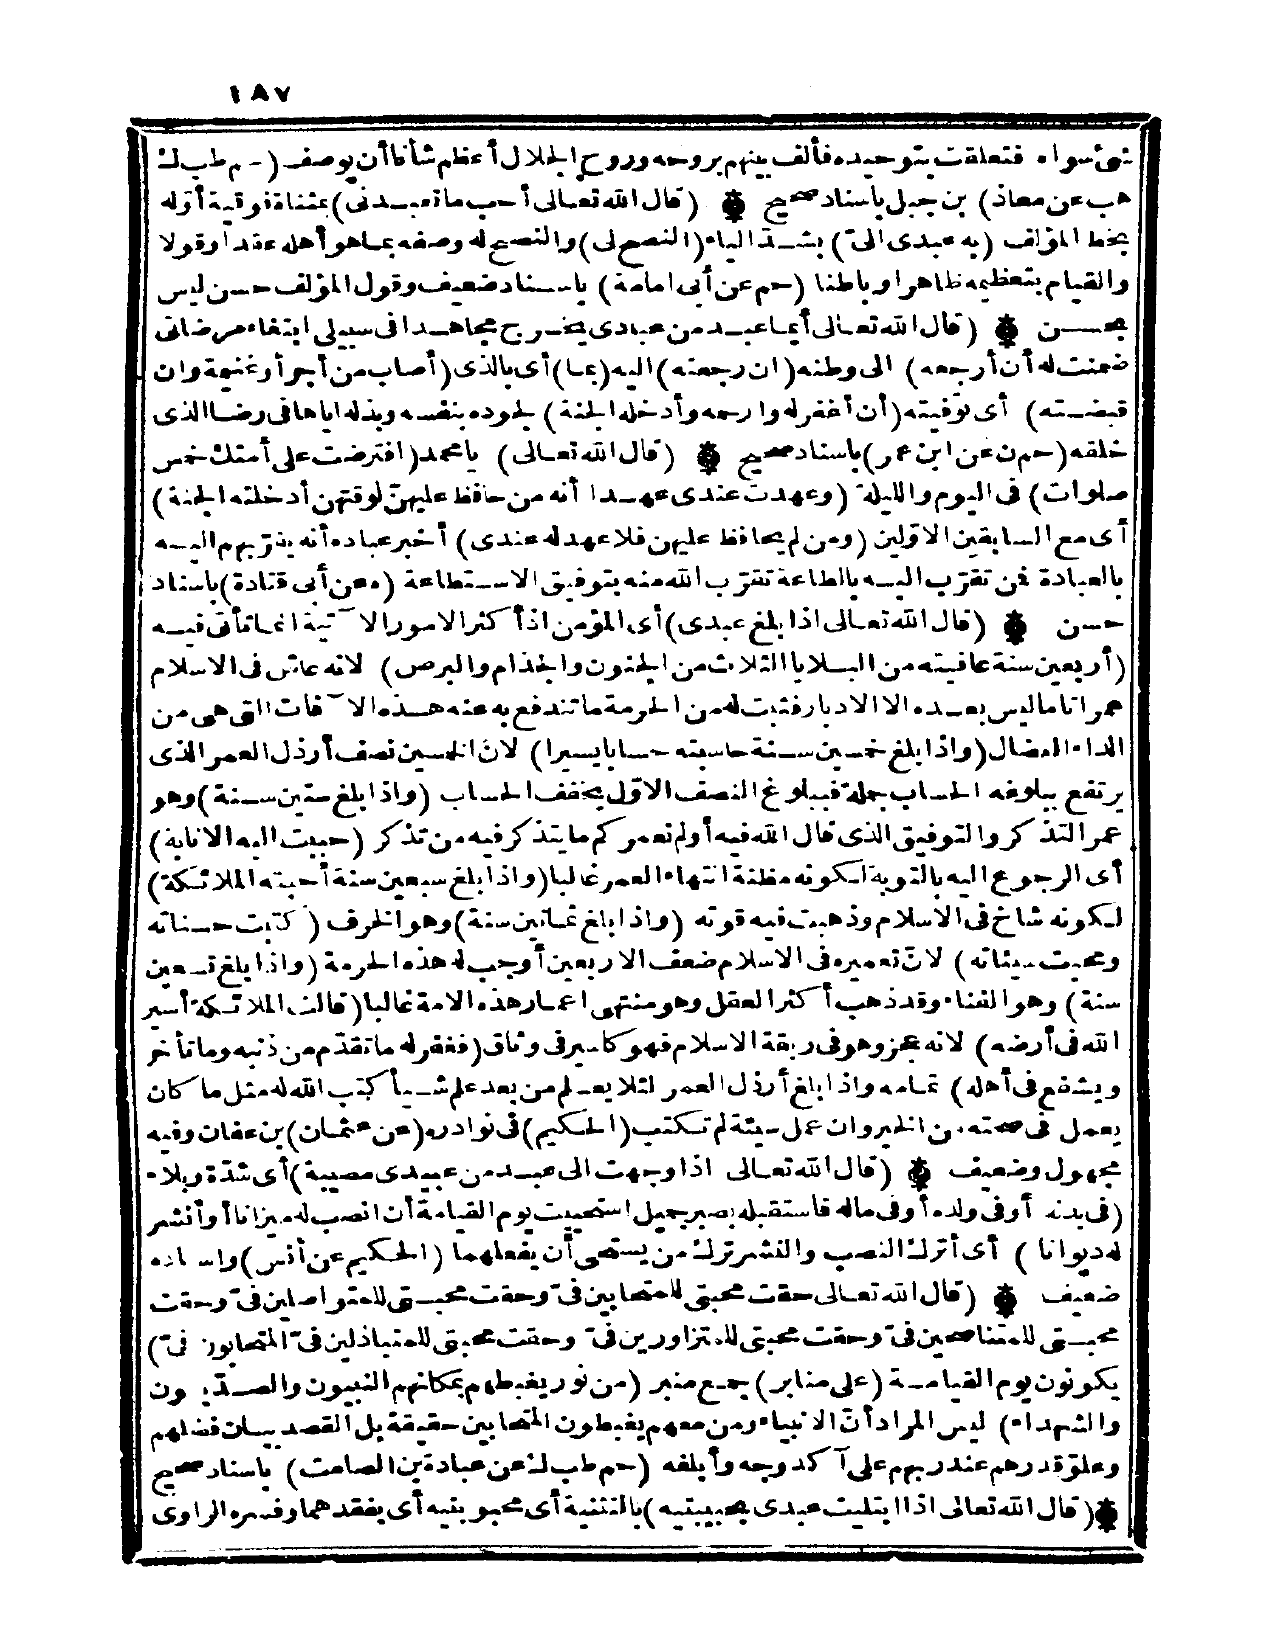 ١٨٧
شئ سواه فتعلقت بتوحيده فألف بينهم بروحه وروح الجلال أعظم شأنا أن يوصف (حم طب ك
هب عن معاذ) بن جبل بأسناد صحيح ۞ (قال الله تعالى أحب ما تعبدنى) بمثناة فوقية أوله
بخط المؤلف (به عبدى الىّ) بشد الياء (النصح لى) والنصح له وصفه بما هو أهله عقدا وقولا
والقيام بتعظيمه ظاهرا وباطنا (حم عن أبى امامة) باسناد ضعيف وقول المؤلف حسن ليس
بحسن ۞ (قال الله تعالى أيما عبد من عبادى يخرج مجاهدا فى سبيلى ابتغاء مرضاتى
ضمنت له أن أرجعه) الى وطنه (ان رجعته) اليه (بما) أى بالذى (أصاب من أجر أو غنيمة وان
قبضته) أى توفيته (أن أغفر له وارحمه وأدخله الجنة) لجوده بنفسه وبذله اياها فى رضا الذى
خلقه (حم ن عن ابن عمر) باسناد صحيح ۞ (قال الله تعالى) يا محمد (افترضت على أمتك خمس
صلوات) فى اليوم والليلة (وعهدت عندى عهدا أنه من حافظ عليهنّ لوقتهن أدخلته الجنة)
أى مع السابقين الاوّلين (ومن لم يحافظ عليهن فلا عهد له عندى) أخبر عباده أنه يقرّبهم اليه
بالعبادة فمن تقرّب اليه بالطاعة تقرّب الله منه بتوفيق الاستطاعة (ه عن أبى قتادة) باسناد
حسن ۞ (قال الله تعالى اذا بلغ عبدى) أى المؤمن اذ أكثر الامور الآتية انما تأتى فيه
(أربعين سنة عافيته من البلايا الثلاث من الجنون والجذام والبرص) لانه عاش فى الاسلام
عمرا تاما ليس بعده الا الادبار فثبت له من الحرمة ما تندفع به عنه هذه الآفات التى هى من
الداء العضال (واذا بلغ خمسين سنة حاسبته حسابا يسيرا) لانّ الخمسين نصف أرذل العمر الذى
يرتفع ببلوغه الحساب جملة فببلوغ النصف الاوّل يخفف الحساب (واذا بلغ ستين سنة) وهو
عمر التذكر والتوفيق الذى قال الله فيه أولم نعمركم ما يتذكر فيه من تذكر (حببت اليه الانابة)
أى الرجوع اليه بالتوبة لكونه مظنة انتهاء العمر غالبا (واذا بلغ سبعين سنة أحبته الملائكة)
لكونه شاخ فى الاسلام وذهبت فيه قوته (واذا بلغ ثمانين سنة) وهو الخرف (كتبت حسناته
ومحيت سيئاته) لانّ تعميره فى الاسلام ضعف الاربعين أوجب له هذه الحرمة (واذا بلغ تسعين
سنة) وهو الفناء وقد ذهب أكثر العقل وهو منتهى اعمار هذه الامة غالبا (قالت الملائكة أسير
الله فى أرضه) لانه عجز وهو فى ربقة الاسلام فهو كاسير فى وثاق (فغفر له ما تقدّم من ذنبه وما تأخر
ويشفع فى أهله) تمامه واذا بلغ أرذل العمر لئلا يعلم من بعد علم شيأ كتب الله له مثل ما كان
يعمل فى صحته من الخير وان عمل سيئة لم تكتب (الحكيم) فى نوادره (عن عثمان) بن عفان وفيه
مجهول وضعيف ۞ (قال الله تعالى اذا وجهت الى عبد من عبيدى مصيبة) أى شدّة وبلاء
(فى بدنه أو فى ولده أو فى ماله فاستقبله بصبر جميل استحييت يوم القيامة أن انصب له ميزانا أو أنشر
له ديوانا) أى أترك النصب والنشر ترك من يستحى أن يفعلهما (الحكيم عن أنس) واسناده
ضعيف ۞ (قال الله تعالى حقت محبتى للمتحابين فىّ وحقت محبتى للمتواصلين فىّ وحقت
محبتى للمتناصحين فىّ وحقت محبتى للمتزاورين فىّ وحقت محبتى للمتباذلين فىّ المتحابون فىّ)
يكونون يوم القيامة (على منابر) جمع منبر (من نور يغبطهم بمكانهم النبيون والصدّيقون
والشهداء) ليس المراد أنّ الانبياء ومن معهم يغبطون المتحابين حقيقة بل القصد بيان فضلهم
وعلوّ قدرهم عند ربهم على آكد وجه وأبلغه (حم طب ك عن عبادة بن الصامت) باسناد صحيح
۞ (قال الله تعالى اذا ابتليت عبدى بحبيبتيه) بالتثنية أى محبوبتيه أى بفقدهما وفسره الراوى